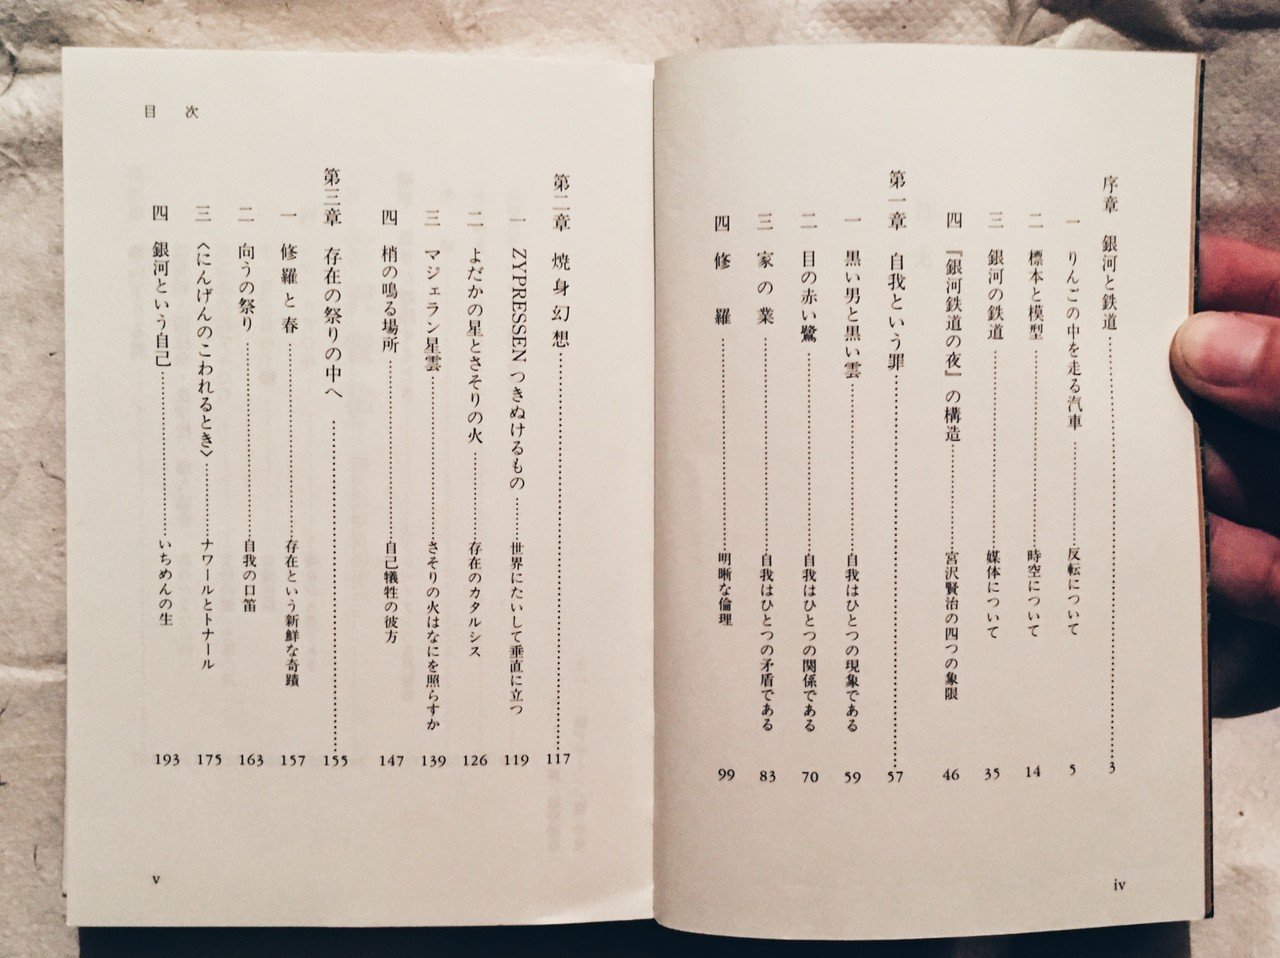 序章 銀河と鉄道……3
一 りんごの中を走る汽車……反転について 5
二 標本と模型……時空について 14
三 銀河の鉄道……媒体について 35
四 『銀河鉄道の夜』の構造……宮沢賢治の四つの象限 46
第一章 自我という罪……57
一 黒い男と黒い雲……自我はひとつの現象である 59
二 目の赤い鷺……自我はひとつの関係である 70
三 家の業……自我はひとつの矛盾である 83
四 修羅……明晰な倫理 99
iv
目次
第二章 焼身幻想……117
一 ZYPRESSEN つきぬけるもの……世界にたいして垂直に立つ 119
二 よだかの星とさそりの火……存在のカタルシス 126
三 マジェラン星雲……さそりの火はなにを照らすか 139
四 梢の鳴る場所……自己犠牲の彼方 147
第三章 存在の祭りの中へ……155
一 修羅と春……存在という新鮮な奇蹟 157
二 向うの祭り……自我の口笛 163
三 〈にんげんのこわれるとき〉……ナワールとトナール 175
四 銀河という自己……いちめんの生 193
v